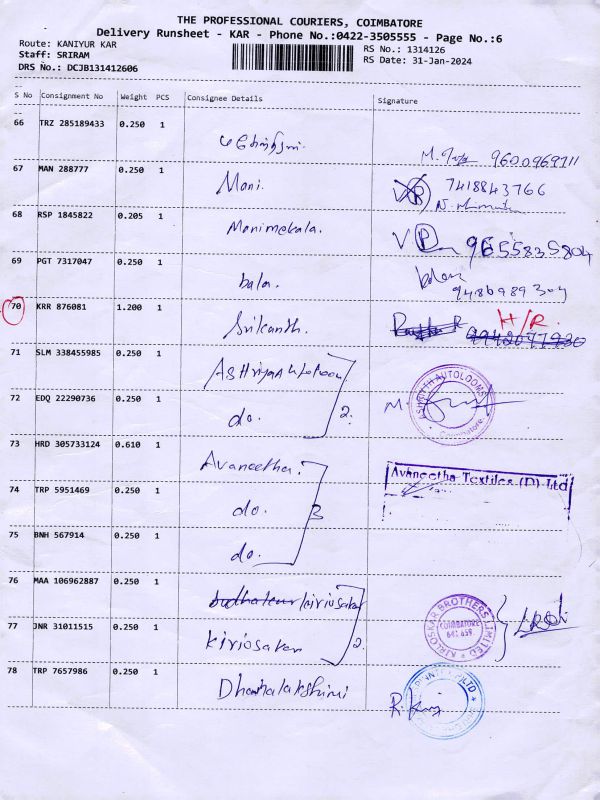 THE PROFESSIONAL COURIERS, COIMBATORE
Delivery Runsheet - KAR - Phone No.:0422-3505555 - Page No.:6
Route: KANIYUR KAR
RS No.: 1314126
Staff: SRIRAM
RS Date: 31-Jan-2024
DRS No.: DCJB131412606
S No Consignment No Weight PCS Consignee Details Signature
66 TRZ 285189433 0.250 1
9600969711
67 MAN 288777 0.250 1 Mani. 7418843766
68 RSP 1845822 0.205 1 Manimekala. 9655835804
69 PGT 7317047 0.250 1 bala.
9486989304
70 KRR 876081 1.200 1 Srikanth. H/R.
9942077930
71 SLM 338455985 0.250 1
72 EDQ 22290736 0.250 1 do. 2.
ASHRIYTH AUTOLOOMS
Coimbatore.
73 HRD 305733124 0.610 1 Avaneetha.
Avaneetha Textiles (P) Ltd
74 TRP 5951469 0.250 1 do. 3
75 BNH 567914 0.250 1 do.
76 MAA 106962887 0.250 1 kirlosakar
KIRLOSKAR BROTHERS LIMITED
COIMBATORE
641 659.
77 JNR 31011515 0.250 1 kirlosakar 2.
78 TRP 7657986 0.250 1 Dhanalakshimi